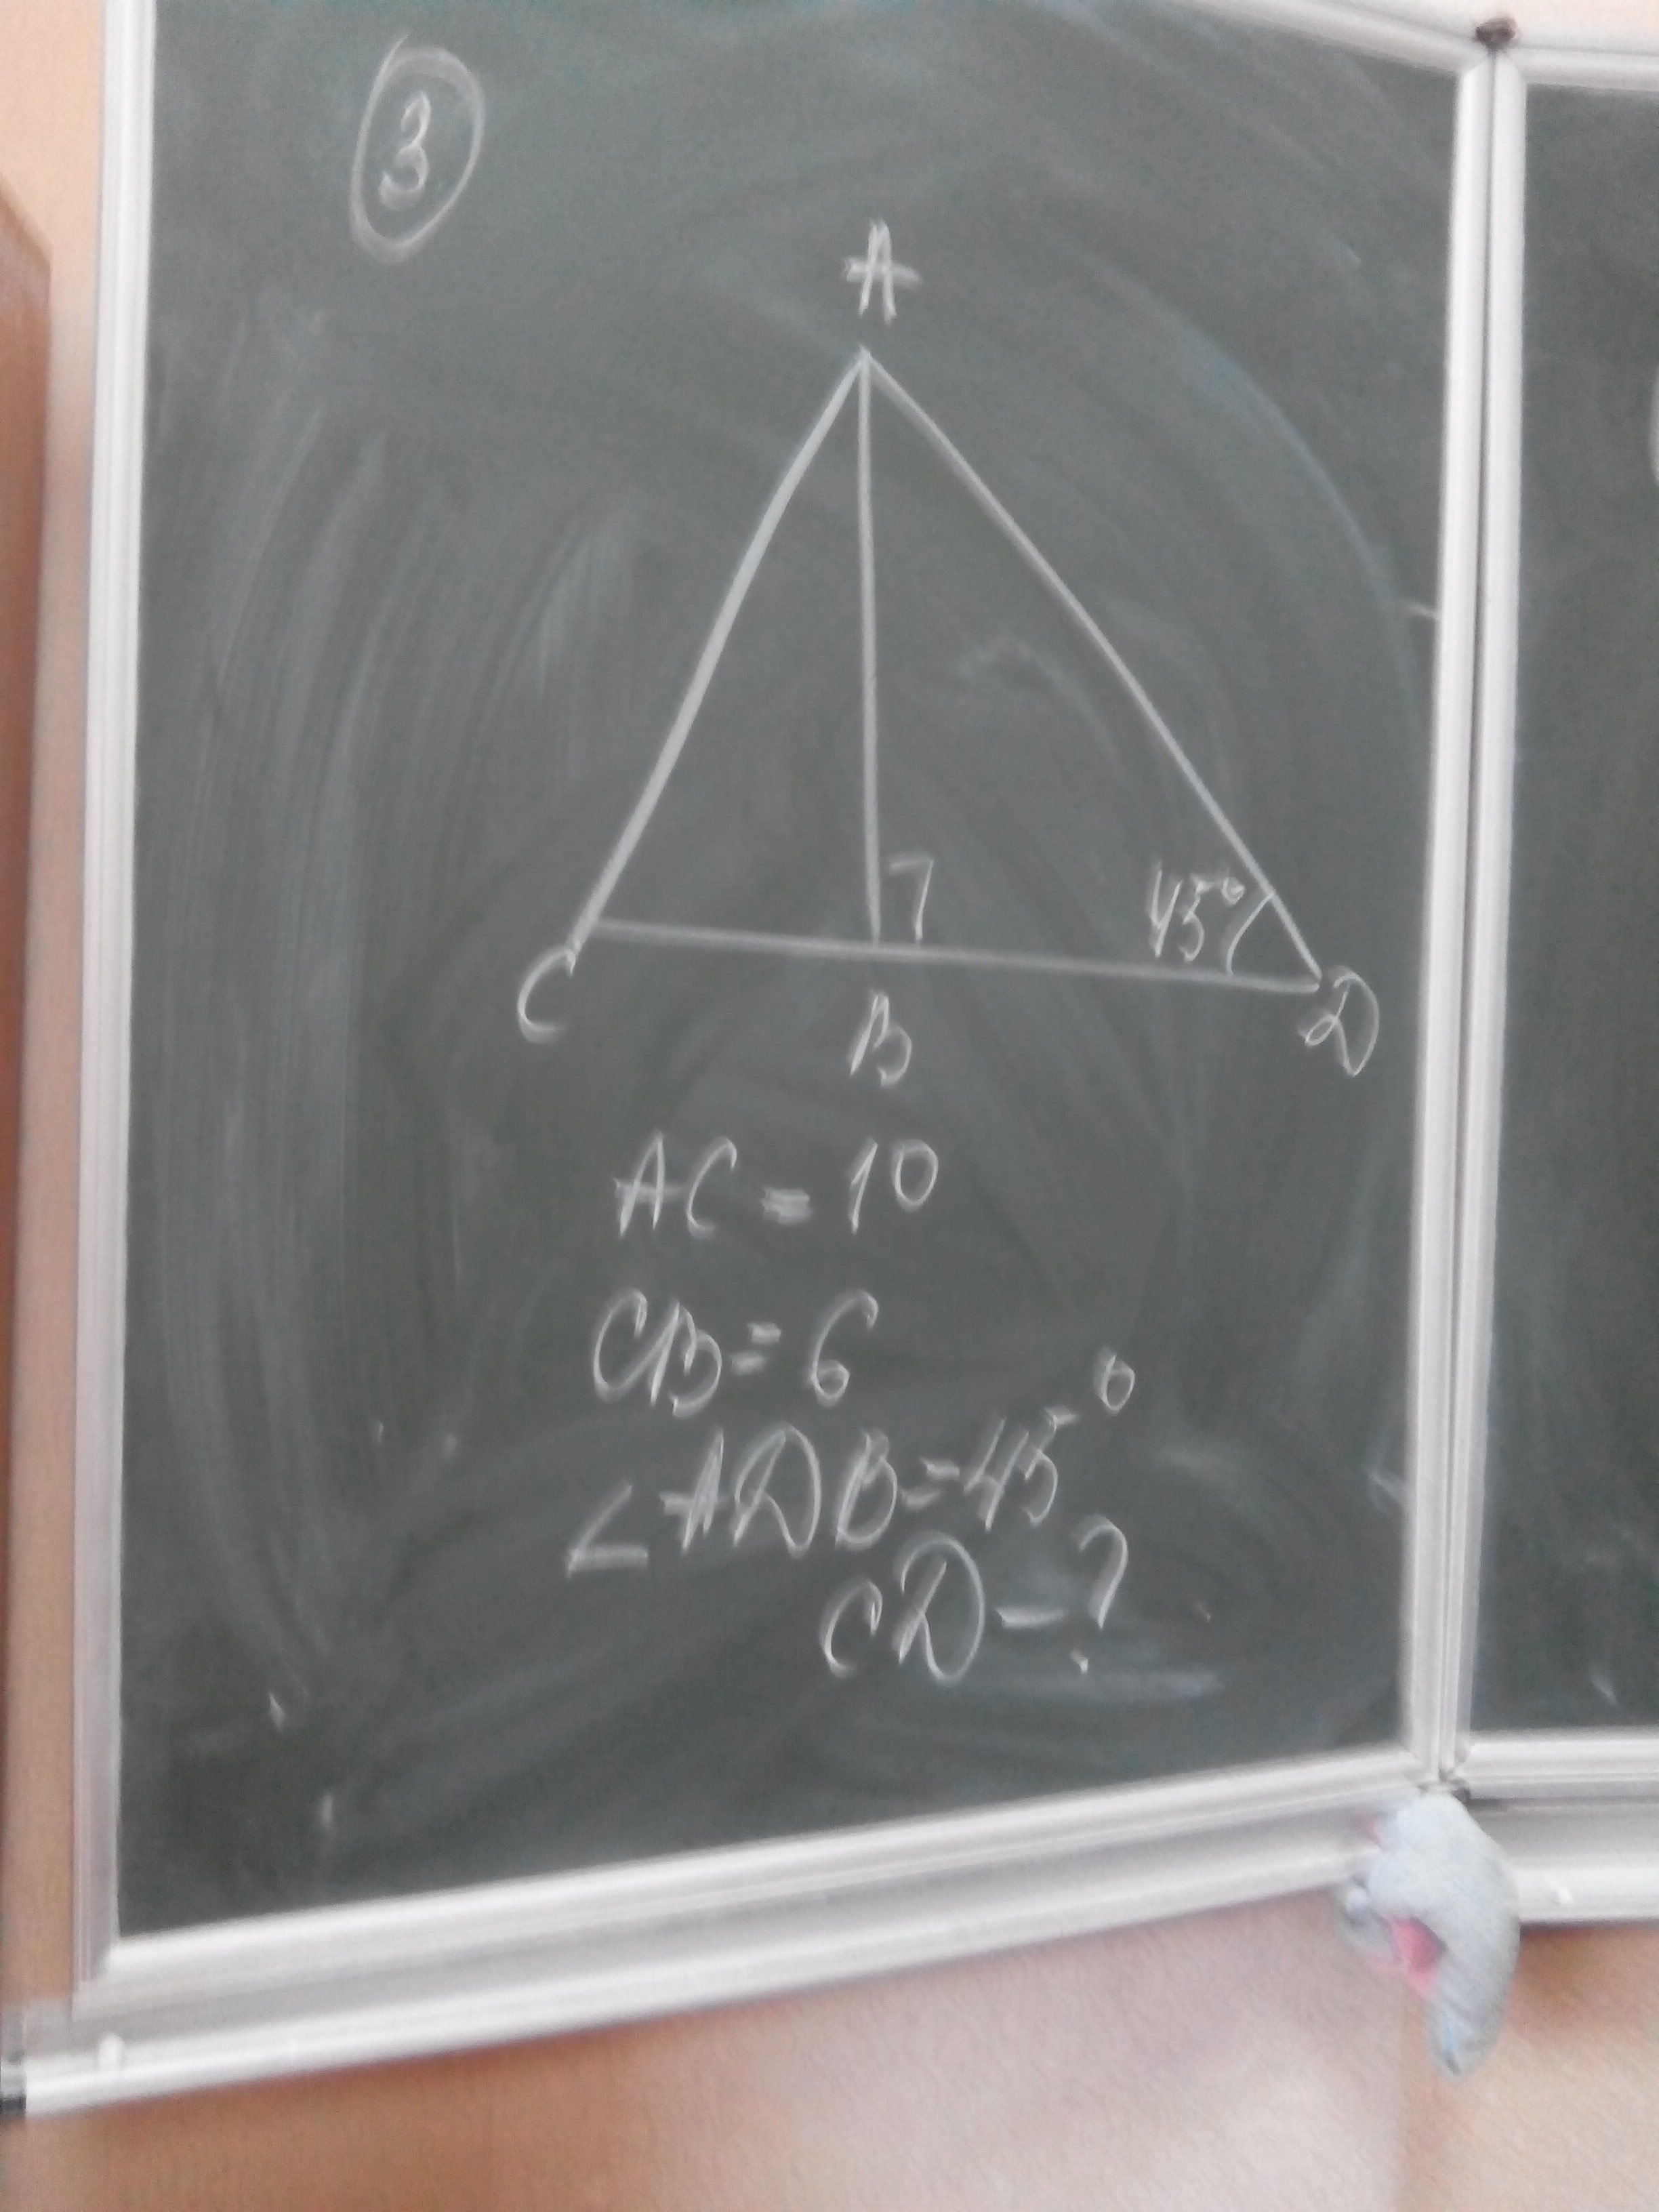 3
A
45°
C
B
D
AC = 10
CB = 6
∠ADB = 45°
CD - ?